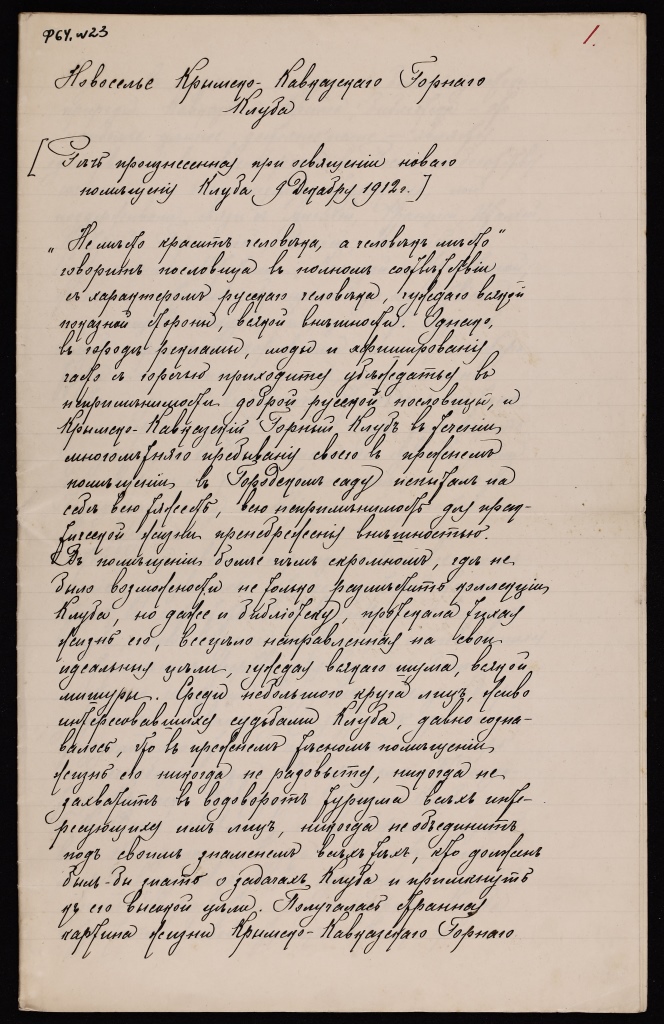 Ф64. №23
1.
Новоселье Крымско-Кавказскаго Горнаго
Клуба
[Рѣчь произнесенная при освященіи новаго
помѣщенія Клуба 9 Декабря 1912 г.]
„Не мѣсто краситъ человѣка, а человѣкъ мѣсто“
говоритъ пословица въ полномъ соотвѣтствіи
съ характеромъ русскаго человѣка, чуждаго всякой
показной стороны, всякой внѣшности. Однако,
въ городѣ рекламы, моды и афишированія
часто съ горечью приходится убѣждаться въ
непримѣнимости доброй русской пословицы, и
Крымско-Кавказскій Горный Клубъ въ теченіи
многолѣтняго пребыванія своего въ прежнемъ
помѣщеніи въ Городскомъ саду испыталъ на
себѣ всю тяжесть, всю непримѣнимость для прак-
тической жизни пренебреженія внѣшностью.
Въ помѣщеніи болѣе чѣмъ скромномъ, гдѣ не
было возможности не только размѣстить коллекціи
Клуба, но даже и библіотеку, протекала тихая
жизнь его, всецѣло направленная на свои
идеальныя цѣли, чуждая всякаго шума, всякой
мишуры. Среди небольшого круга лицъ, живо
интересовавшихся судьбами Клуба, давно созна-
валось, что въ прежнемъ тѣсномъ помѣщеніи
жизнь его никогда не разовьется, никогда не
захватитъ въ водоворотъ туризма всѣхъ инте-
ресующихся имъ лицъ, никогда не объединитъ
подъ своимъ знаменемъ всѣхъ тѣхъ, кто долженъ
былъ-бы знать о задачахъ Клуба и примкнуть
къ его высокой цѣли. Получалась странная
картина жизни Крымско-Кавказскаго Горнаго